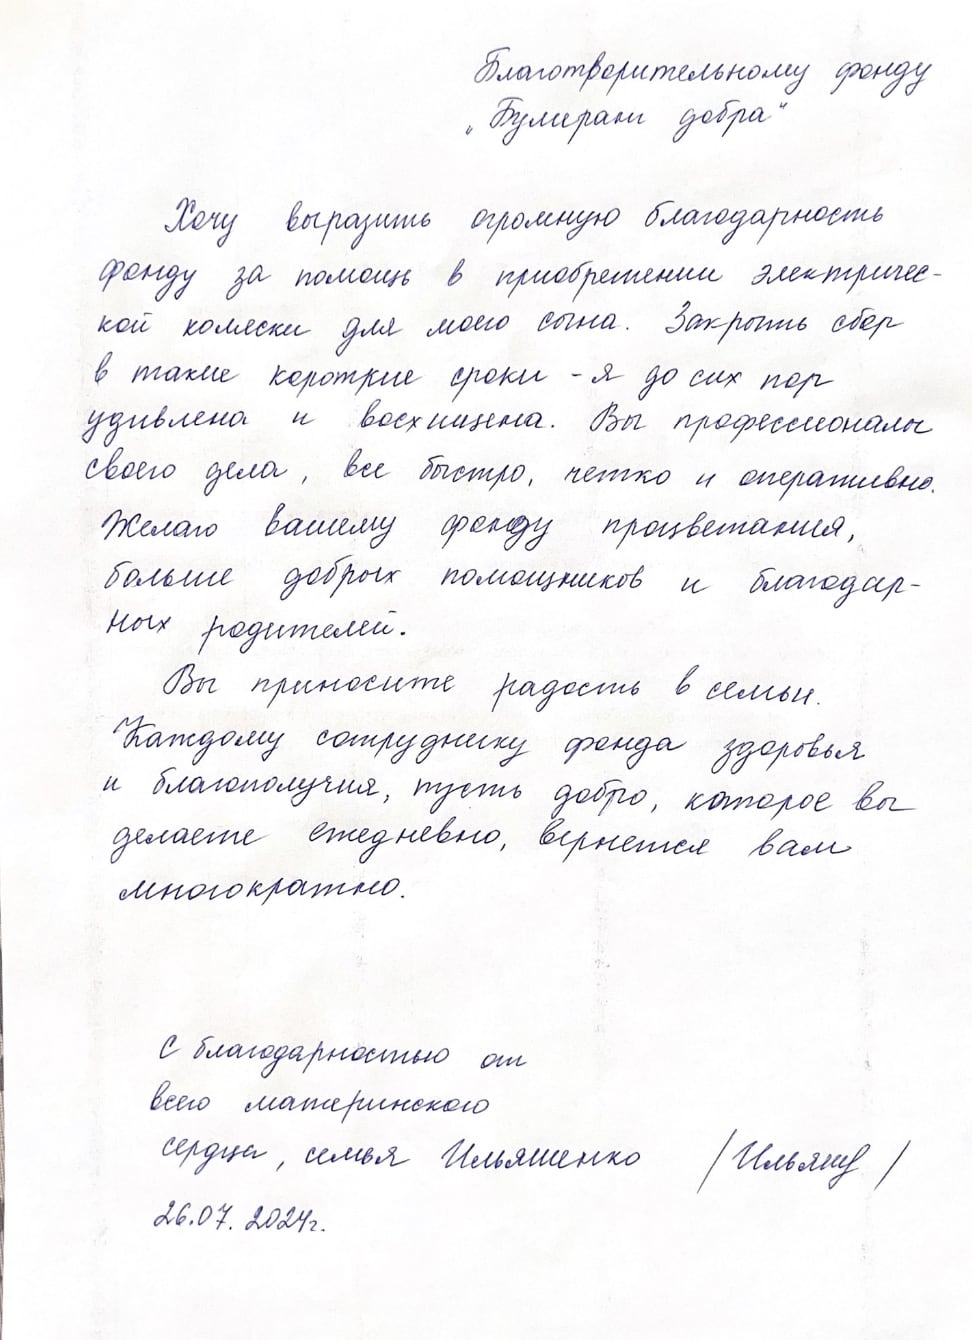 Благотворительному фонду
„Бумеранг добра“
Хочу выразить огромную благодарность
фонду за помощь в приобретении электричес-
кой коляски для моего сына. Закрыть сбор
в такие короткие сроки - я до сих пор
удивлена и восхищена. Вы профессионалы
своего дела, все быстро, четко и оперативно.
Желаю вашему фонду процветания,
больше добрых помощников и благодар-
ных родителей.
Вы приносите радость в семьи.
Каждому сотруднику фонда здоровья
и благополучия, пусть добро, которое вы
делаете ежедневно, вернется вам
многократно.
С благодарностью от
всего материнского
сердца, семья Ильяшенко /Ильяш/
26.07.2024г.